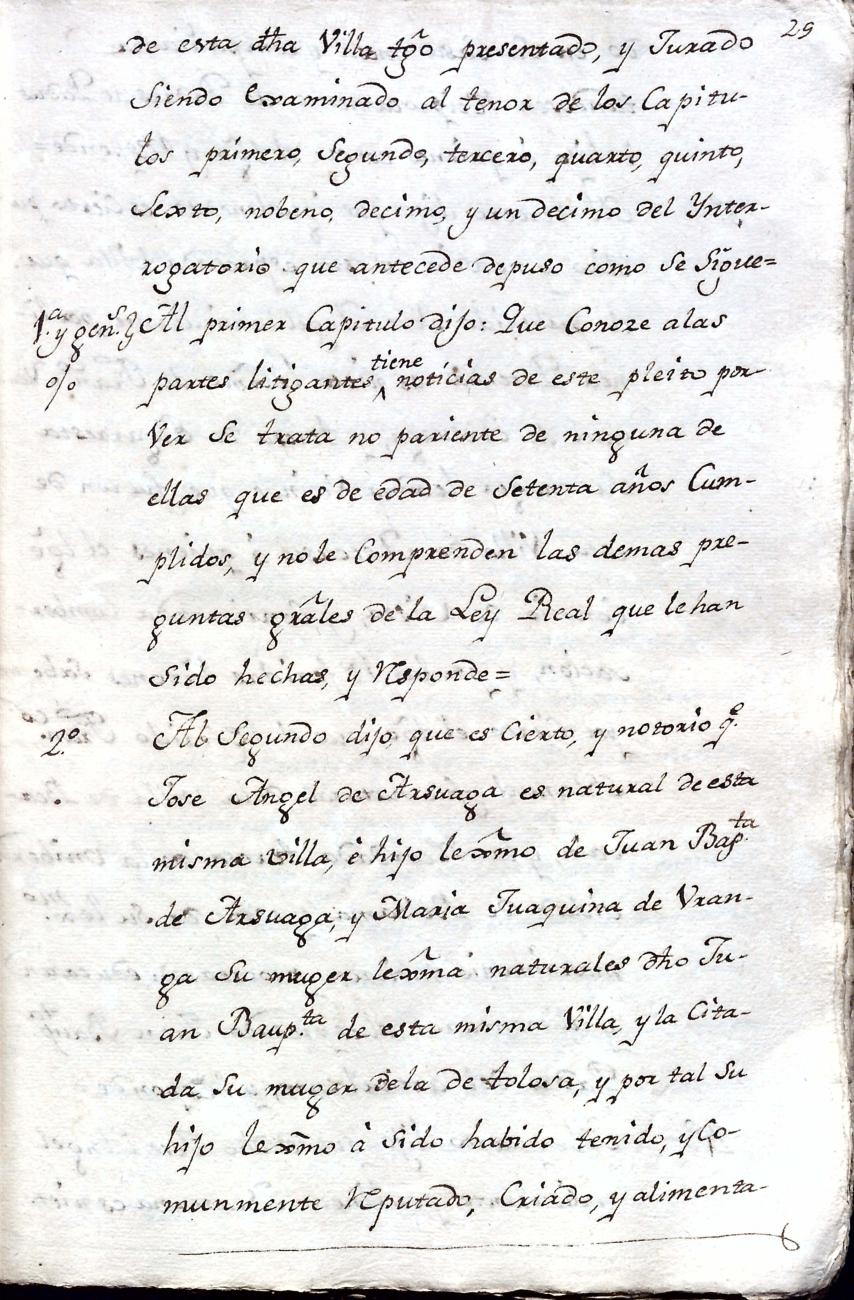 29
de esta dha Villa tg̃o presentado, y Jurado
Siendo Examinado al tenor de los Capitu-
los primero, Segundo, tercero, quarto, quinto,
Sexto, nobeno, decimo, y un decimo del Ynter-
rogatorio que antecede depuso como se Sigue=
1.ª y gen.s } Al primer Capitulo dijo: Que Conoze a las
partes litigantes, tiene noticias de este pleito por
Ver Se trata no pariente de ninguna de
ellas que es de edad de Setenta años Cum-
plidos, y no le Comprenden las demas pre-
guntas grãles de la Ley Real que le han
Sido hechas, y Responde=
2.º Al Segundo dijo que es Cierto, y notorio q.e
Jose Angel de Arsuaga es natural de esta
misma Villa, è hijo lexm̃o de Juan Bap.ta
de Arsuaga, y Maria Juaquina de Vran-
ga Su muger lexm̃a naturales dho Ju-
an Baup.ta de esta misma Villa, y la Cita-
da Su muger de la de tolosa, y por tal Su
hijo lexm̃o à Sido habido tenido, y Co-
munmente Reputado, Criado, y alimenta-